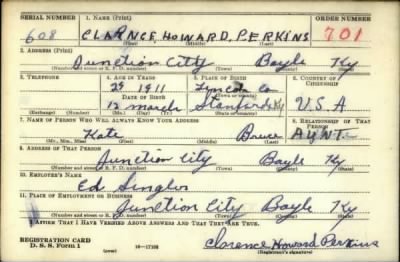 SERIAL NUMBER 1. NAME (Print) ORDER NUMBER
608 CLARNCE HOWARD PERKINS 701
(First) (Middle) (Last)
2. ADDRESS (Print)
Junction City Boyle Ky
(Number and street or R. F. D. number) (Town) (County) (State)
3. TELEPHONE 4. AGE IN YEARS 5. PLACE OF BIRTH 6. COUNTRY OF CITIZENSHIP
29 1911 Lincoln Co
DATE OF BIRTH
12 March Stanford Ky U.S.A
(Exchange) (Number) (Mo.) (Day) (Yr.) (Town or county) (State or country)
7. NAME OF PERSON WHO WILL ALWAYS KNOW YOUR ADDRESS 8. RELATIONSHIP OF THAT PERSON
Kate Bruce AUNT
(Mr., Mrs., Miss) (First) (Middle) (Last)
9. ADDRESS OF THAT PERSON
Junction City Boyle Ky
(Number and street or R. F. D. number) (Town) (County) (State)
10. EMPLOYER'S NAME
Ed
11. PLACE OF EMPLOYMENT OR BUSINESS
Junction City Boyle Ky
(Number and street or R. F. D. number) (Town) (County) (State)
I AFFIRM THAT I HAVE VERIFIED ABOVE ANSWERS AND THAT THEY ARE TRUE.
REGISTRATION CARD
D. S. S. Form 1 (over) 16—17105 Clorence Howard Perkins
(Registrant's signature)